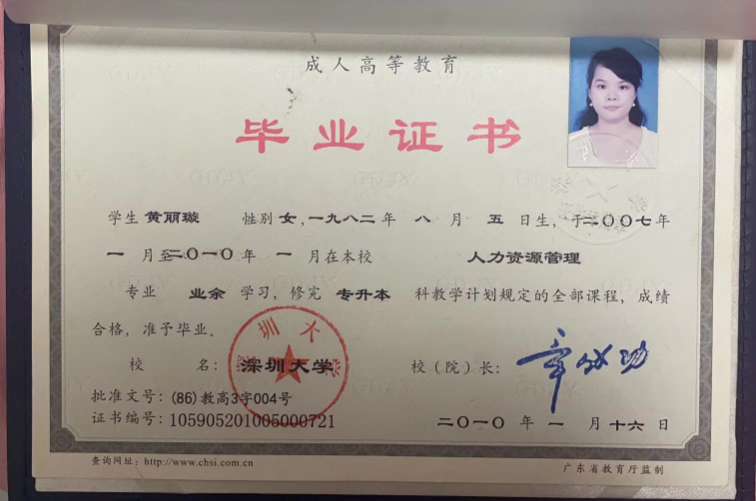 成人高等教育
毕业证书
学生 黄丽璇 性别 女,一九八二年 八 月 五 日生,于二〇〇七年
一 月至二〇一〇年 一 月在本校 人力资源管理
专业 业余 学习,修完 专升本 科教学计划规定的全部课程,成绩
合格,准予毕业。
校 名: 深圳大学
校(院)长: 章必功
批准文号: (86)教高3字004号
证书编号: 105905201005000721
二〇一〇 年 一 月 十六 日
查询网址: http://www.chsi.com.cn
广东省教育厅监制
深圳大学